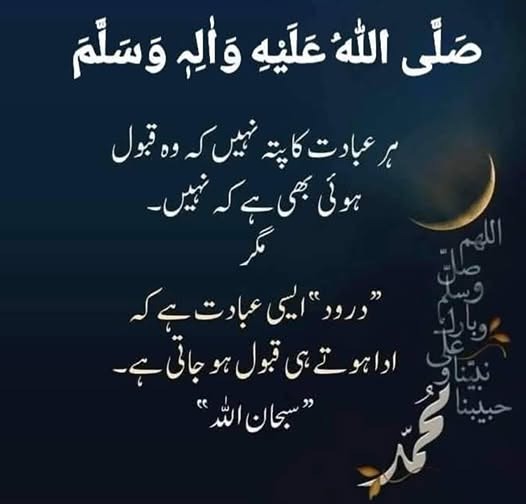 صَلَّی اللهُ عَلَیْہِ وَاٰلِہٖ وَسَلَّمَ
ہر عبادت کا پتہ نہیں کہ وہ قبول
ہوئی بھی ہے کہ نہیں۔
مگر
”درود“ ایسی عبادت ہے کہ
ادا ہوتے ہی قبول ہو جاتی ہے۔
”سبحان اللہ“
اللهم
صلّ
وسلم
وبارك
على
نبيّنا و
حبيبنا
مُحمّد